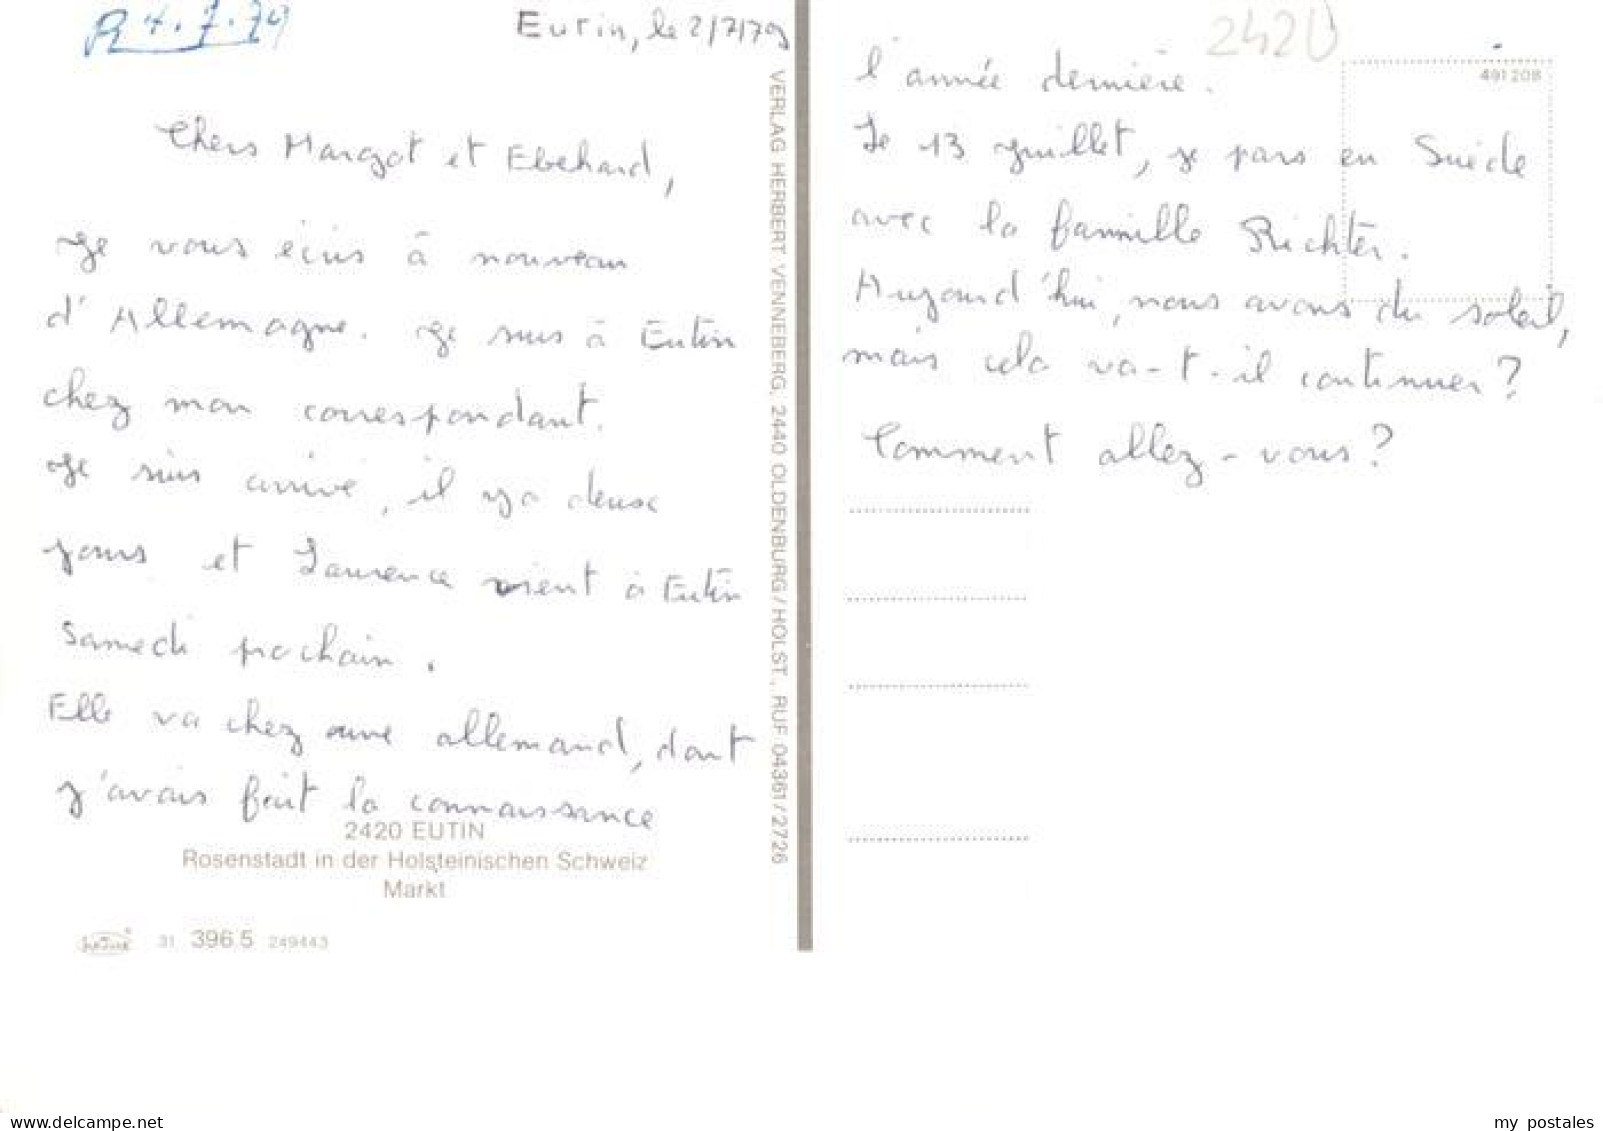 R 4.7.79
Eutin, le 2/7/79
Chers Margot et Ebehard,
Je vous écris à nouveau
d'Allemagne. Je suis à Eutin
chez mon correspondant.
Je suis arrivé, il y a deux
jours et Laurence vient à Eutin
Samedi prochain.
Elle va chez une allemand, dont
j'avais fait la connaissance
2420 EUTIN
Rosenstadt in der Holsteinischen Schweiz
Markt
31 396.5 249443
VERLAG HERBERT VENNEBERG, 2440 OLDENBURG/HOLST., RUF 04361/2726
2420
491208
l'année dernière.
Le 13 juillet, je pars en Suède
avec la famille Richter.
Aujourd'hui, nous avons du soleil,
mais cela va-t-il continuer?
Comment allez-vous?
delcampe.net
my_postales